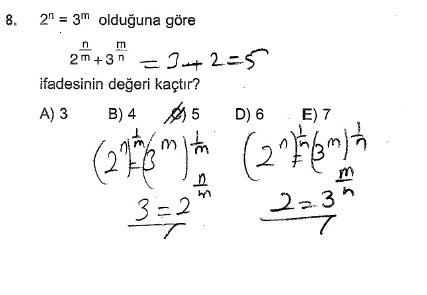 8. 2ⁿ = 3ᵐ olduğuna göre
2^(n/m) + 3^(m/n) = 3 + 2 = 5
ifadesinin değeri kaçtır?
A) 3 B) 4 C) 5 D) 6 E) 7
(2ⁿ)^(1/m) = (3ᵐ)^(1/m) (2ⁿ)^(1/n) = (3ᵐ)^(1/n)
3 = 2^(n/m) 2 = 3^(m/n)